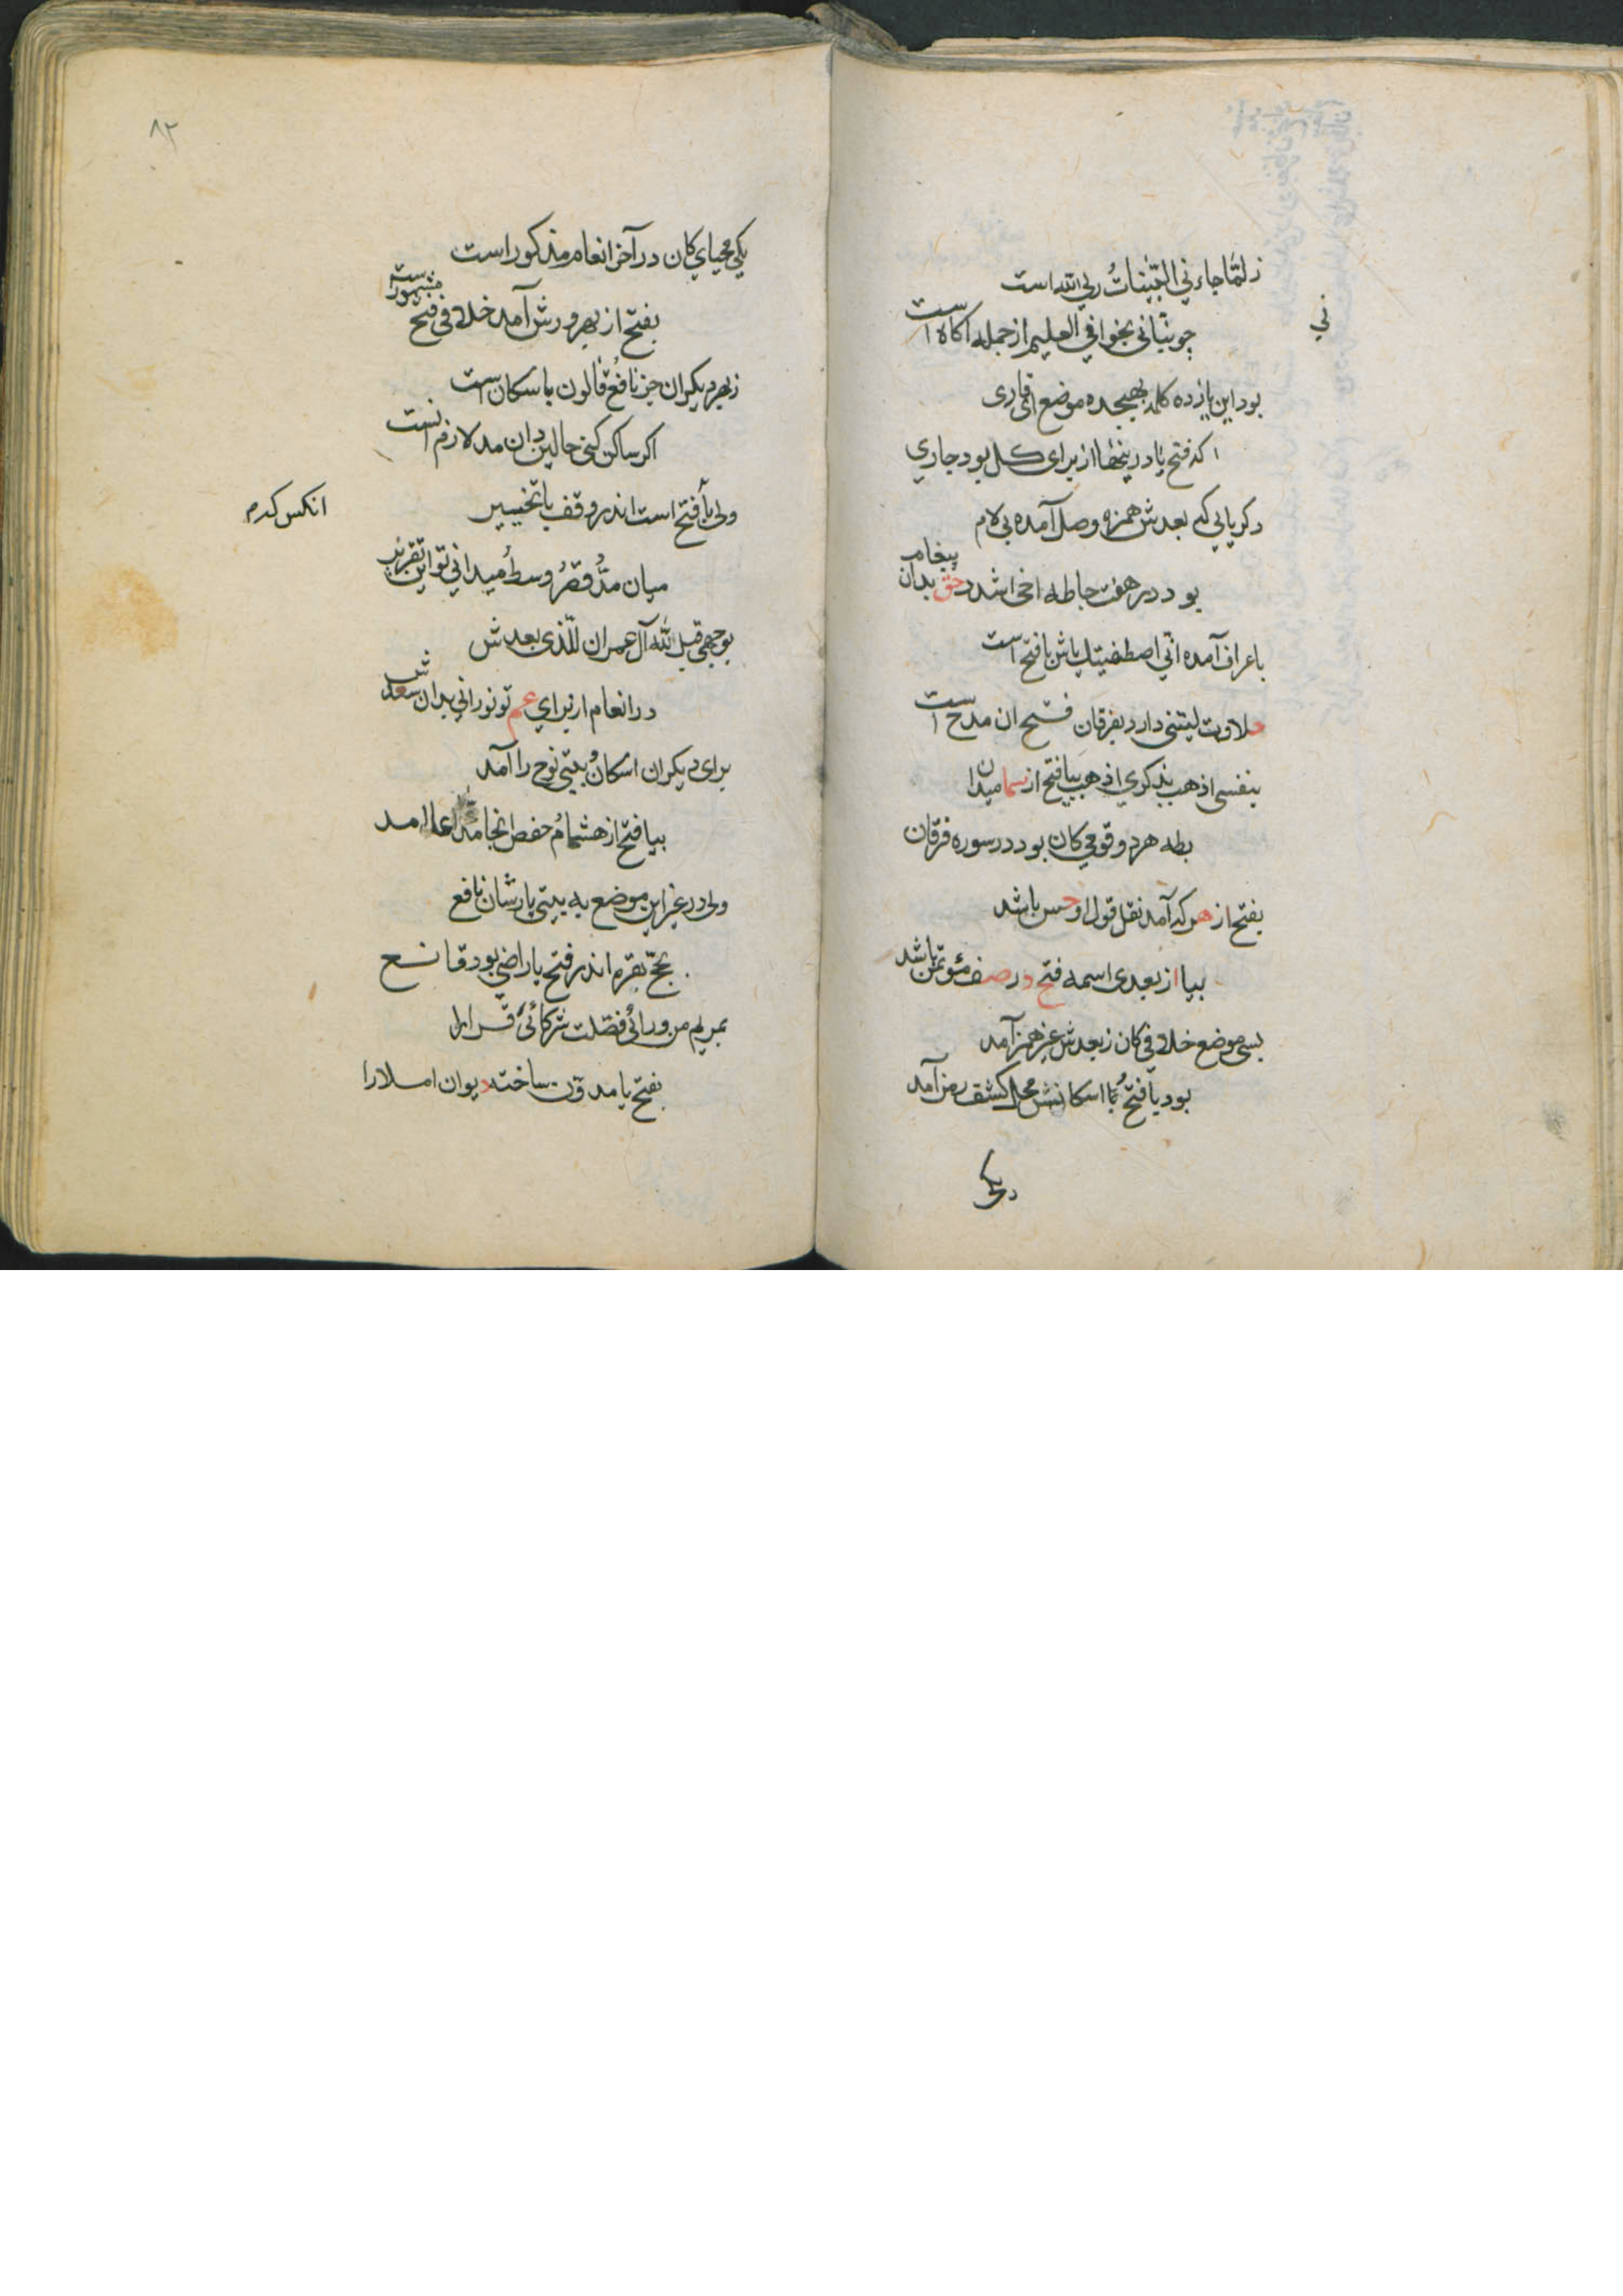 ز لمّا جاءني البيّناتُ ربي الله است
ني
چو نبّأني بخواني العليم از جمله آگاه است
بود این یازده کلمه بهیجده موضع ای قاری
که فتح یا در ینها از برای کل بود جاری
دگر یایی که بعدش همزه وصل آمده بی لام
بود در هفت جا طه اخی اشدد حق بدان پیغام
باعراف آمده انّی اصطفیتك یاش با فتح است
حلاوت لیتنی دارد بفرقان فتح ان مدح است
بنفسی اذهب بذکری اذهبا بیا فتح از سما میدان
بطه هردو قومی کان بود در سوره فرقان
بفتح از هر که آمد نقل قول او حسن باشد
بیا از بعدی اسمه فتح در صف مؤتمن باشد
بسی موضع خلافی کان ز بعدش غیر همز آمد
بود با فتحُ با اسکانش محل کشف رمز آمد
یکی
۸۲
یکی محیای کان در آخر انعام مذکور است
بفتح از بهر ورش آمد خلافی فتح مشهور است
ز بهر دیگران جز نافعُ قالون باسکان است
اگر ساکن کنی حالین دان مد لازم انست
ولی با فتح است اندر وقف با تخییر
انکس کدم
میان مدُّ قصرُ وسطُ میدانی تو این تقریر
بوجهی قبل لله آل عمران للّذی بعدش
در انعام از برای عم تو نورانی بدان سعدش
برای دیگران اسکانُ بیتی نوح را آمد
بیا فتح از هشامُ حفص انجا مد
ولی در غیر این موضع به بیتی یارشان نافع
بحجّ بقره اندر فتح یا راضی بود قانع
بمریم من ورائیُ فصّلت شرکائیُ قرا را
بفتح یا مدوّن ساخته دیوان املا را